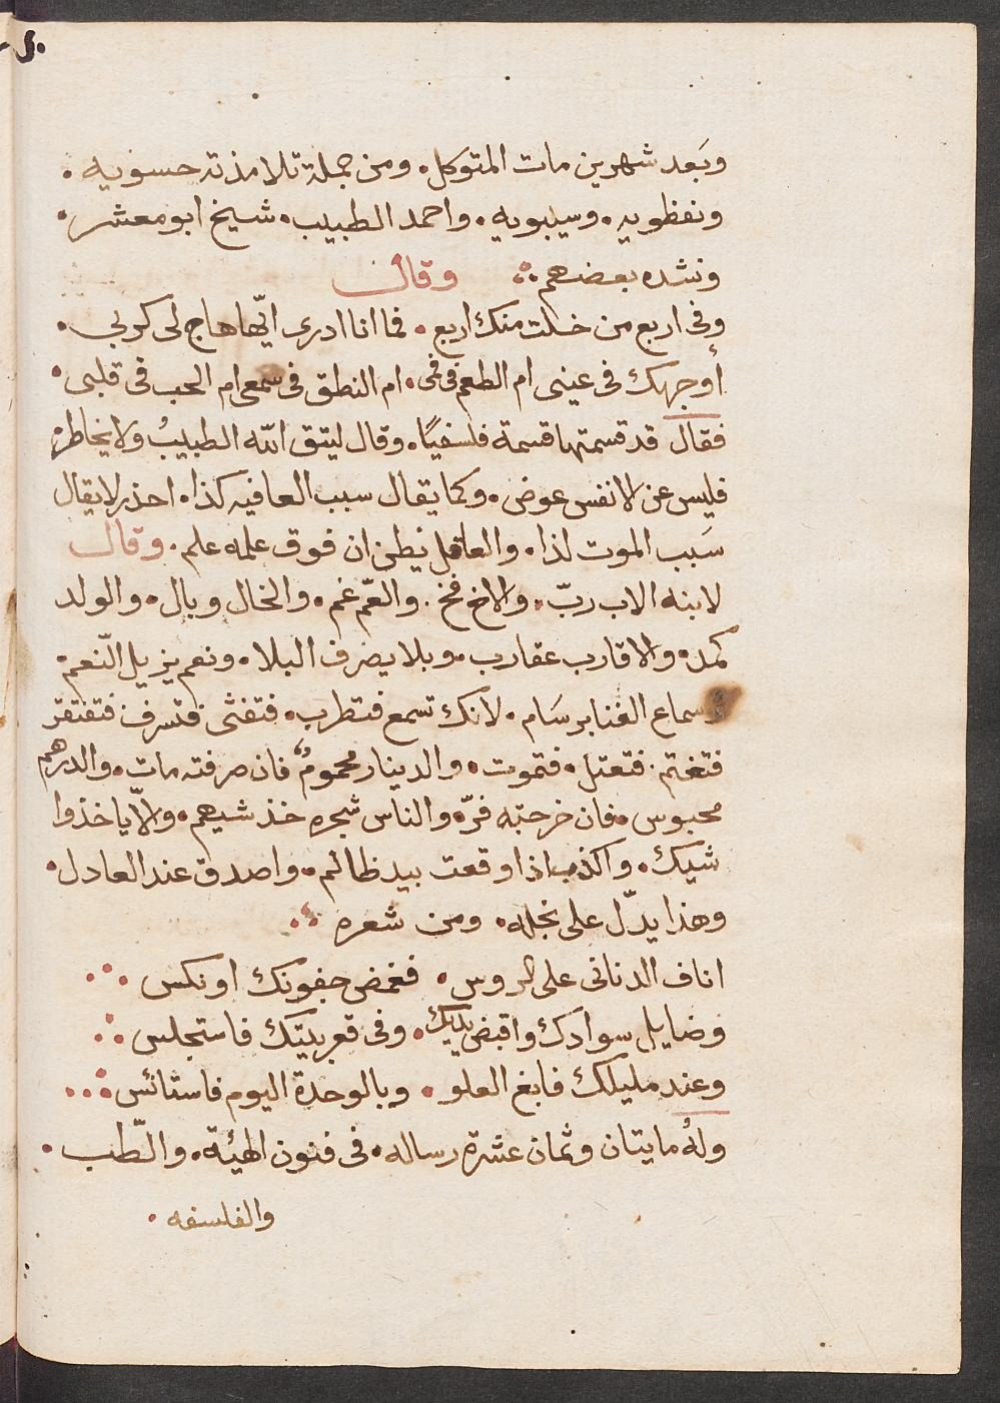 وبَعد شهرين مات المتوكل. ومن جملة تلامذته حسويه.
ونفظويه. وسيبويه. واحمد الطبيب. شيخ ابو معشر.
ونشده بعضهم وقال
وفى اربع من خلت منك اربع. فما انا ادرى ايّها هاج لى كربى.
أوجهك فى عينى ام الطعم فى فمى. ام النطق فى سمعى ام الحب فى قلبى.
فقال قد قسمتها قسمة فلسفيًا. وقال ليتق الله الطبيبُ ولا يخاطر.
فليس عن لانفس عوض. وكما يقال سبب العافيه كذا. احذر لا يقال
سَبب الموت لذا. والعاقل يظن ان فوق علمه علم. وقال
لابنه الاب ربّ. والاخ فخ. والعّم غم. والخال وبال. والولد
كمد. والاقارب عقارب. وبلا يصرف البلا. ونعم يزيل النّعم.
وسماع الغنا برسَام. لانك تسمع فتطرب. فتفثى فتسرف فتفتقر
فتغتم. فتعتل. فتموت. والدينار محمومٌ، فان صرفته مات. والدرهم
محبوس. فان خرجته فرّ. والناس شجره خذ شيهم. والاّ ياخذوا
شيك. واكذب اذا وقعت بيد ظالم. واصدق عند العادل.
وهذا يدّل على نجله. ومن شعره
اناف الدنانى على الروس. فغمض جفونك او نكس
وضايل سوادك واقبض يديك. وفى قعر بيتك فاستجلس
وعند مليلك فابغ العلو. وبالوحدة اليوم فاستانس
ولهُ مايتان وثمان عشرة رساله. فى فنون الهيئة. والطّب.
والفلسفه.